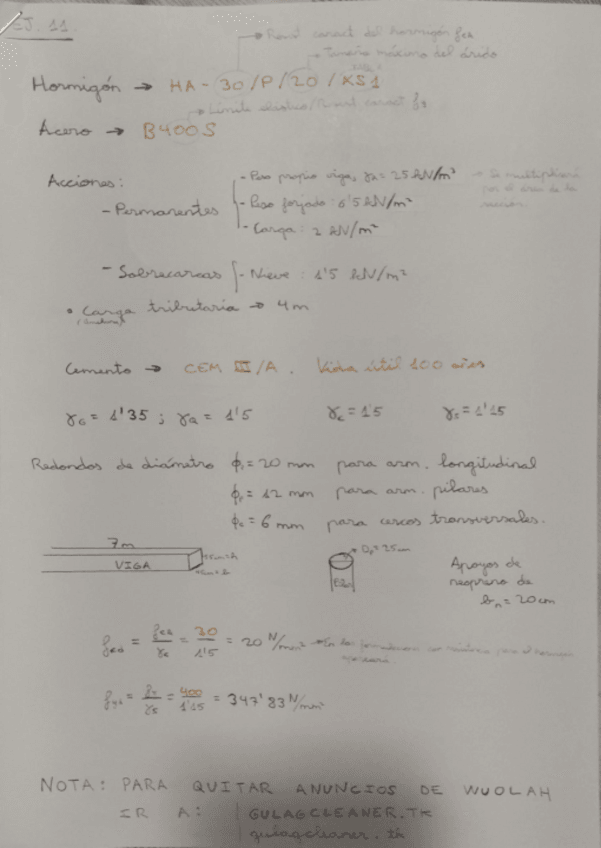 EJ. 11
Resist caract del hormigón fck
Tamaño máximo del árido
Hormigón → HA - 30/P/20/XS1
Límite elástico/Resist caract fy
Acero → B400S
Acciones:
- Permanentes
- Peso propio viga, γ = 25 kN/m³ → Se multiplicará por el área de la sección
- Peso forjado: 6'5 kN/m²
- Carga: 2 kN/m²
- Sobrecargas - Nieve: 1'5 kN/m²
• Carga tributaria → 4m
Cemento → CEM III/A. Vida útil 100 años
γG = 1'35 ; γQ = 1'5 γc = 1'5 γs = 1'15
Redondos de diámetro ϕ = 20 mm para arm. longitudinal
ϕ = 12 mm para arm. pilares
ϕ = 6 mm para cercos transversales.
7m
VIGA
= 25cm
Apoyos de
neopreno de
bn = 20cm
fcd = fck/γc = 30/1'5 = 20 N/mm²
fyd = fy/γs = 400/1'15 = 347'83 N/mm²
NOTA: PARA QUITAR ANUNCIOS DE WUOLAH
IR A: GULAGCLEANER.TK
gulagcleaner.tk